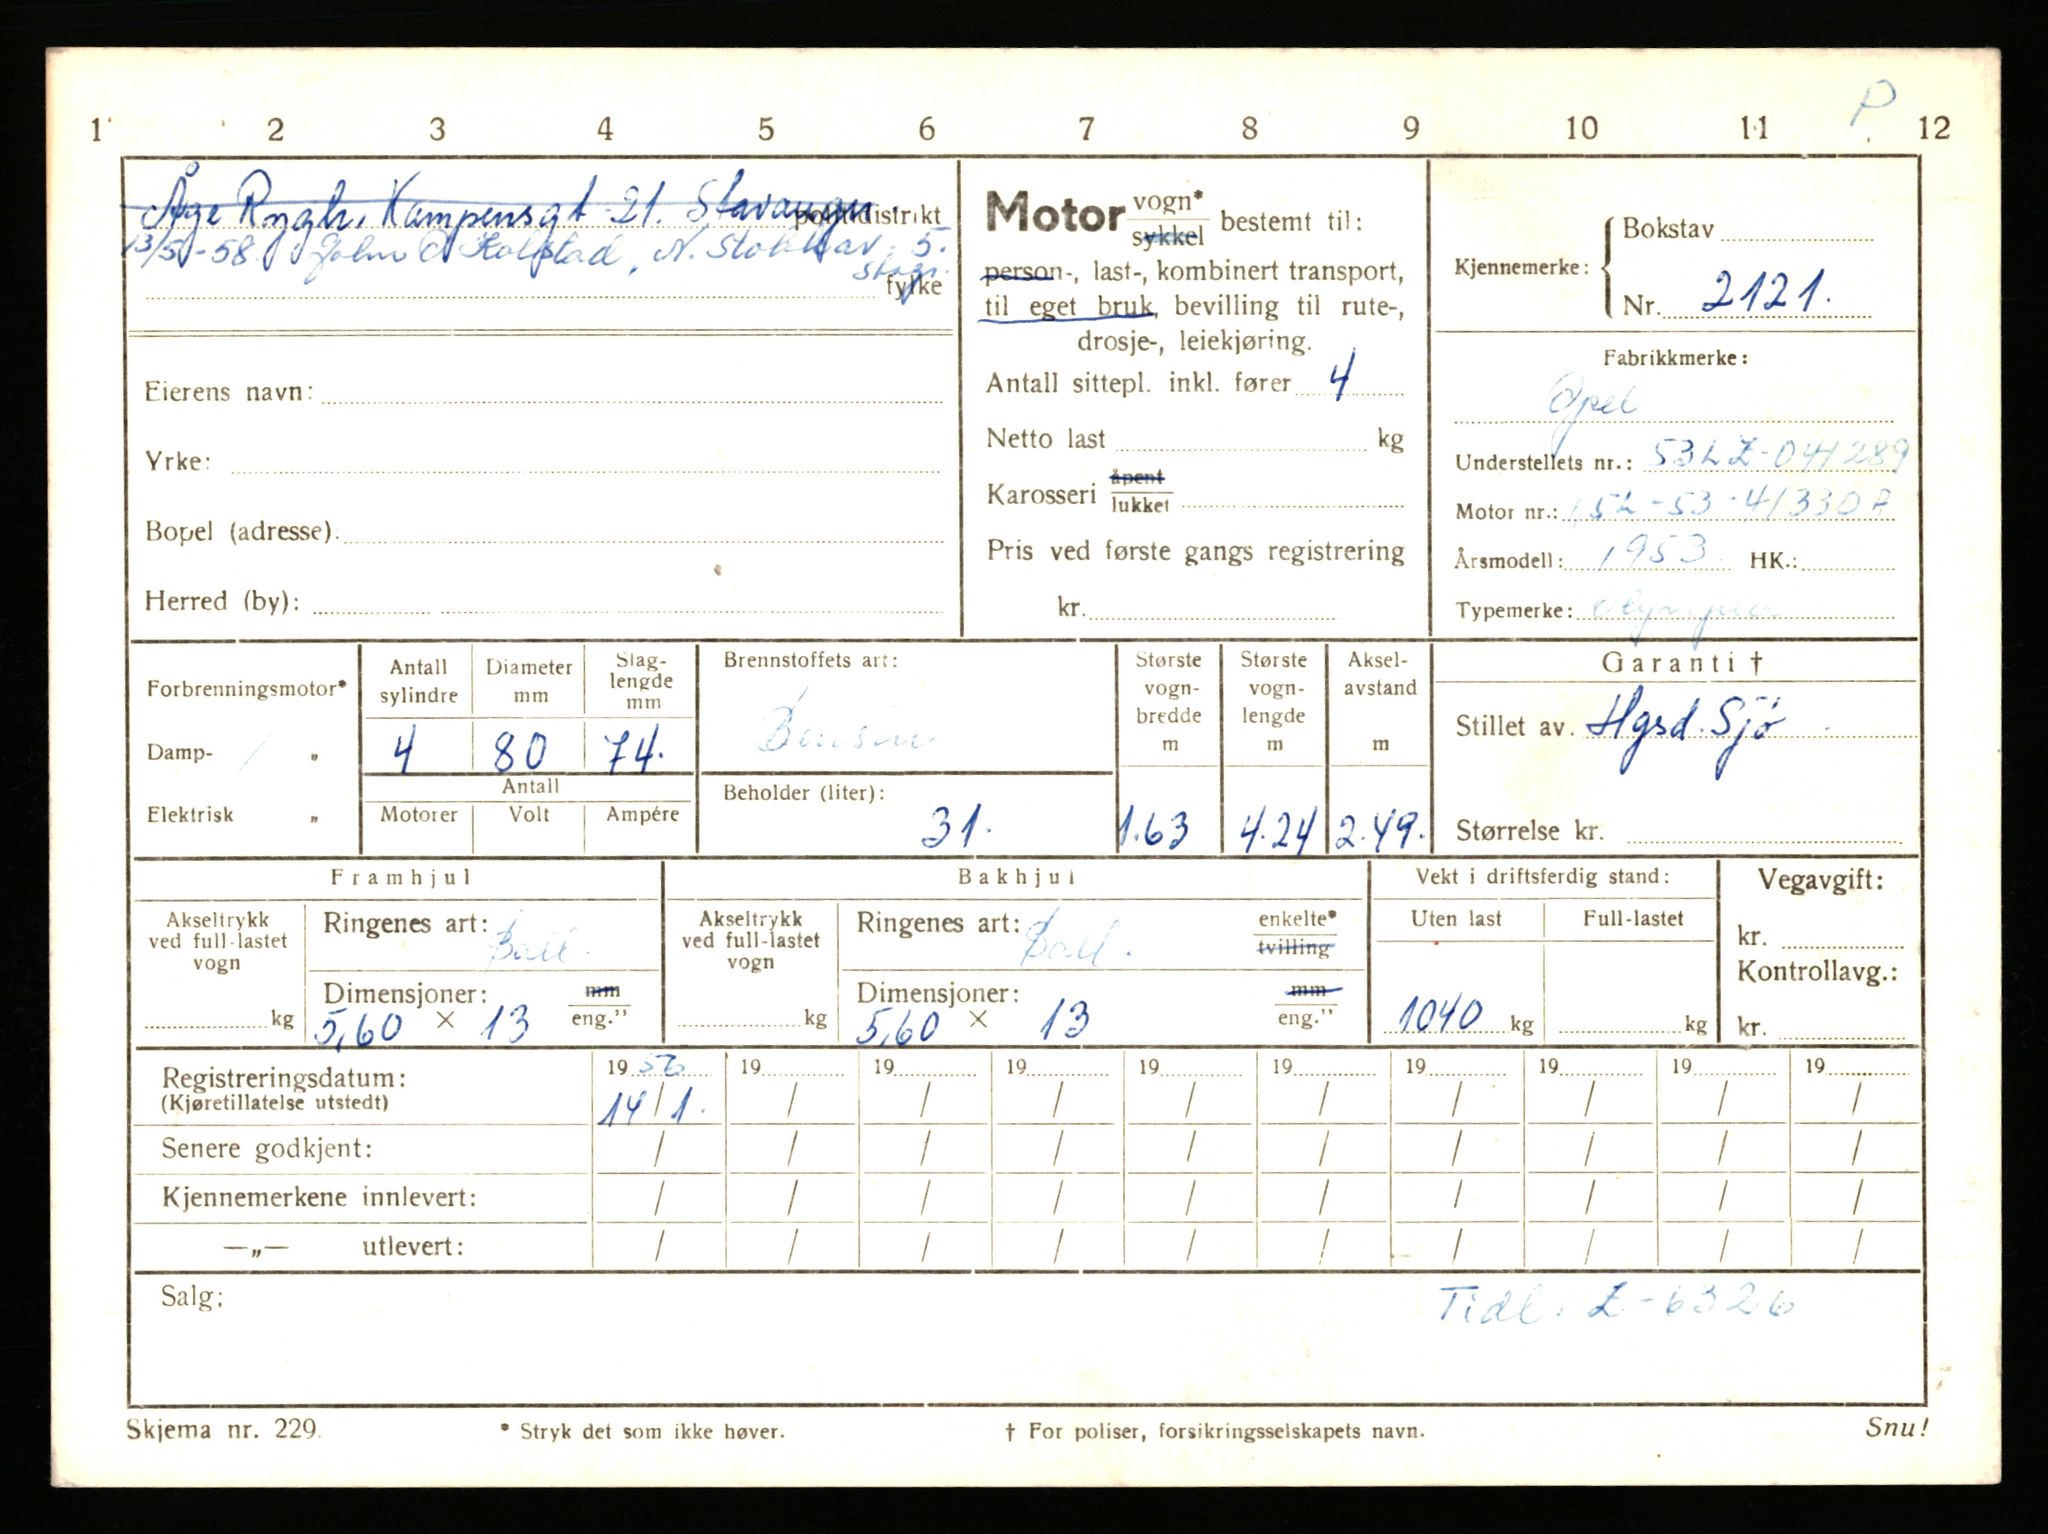 P
1 2 3 4 5 6 7 8 9 10 11 12
Åge Rygh, Kampensgt 21. Stavanger politidistrikt
13/5-58. John Kolstad, N. 5.
Stvgr. fylke
Eierens navn:
Yrke:
Bopel (adresse):
Herred (by):
Motor vogn*
sykkel bestemt til:
person-, last-, kombinert transport,
til eget bruk, bevilling til rute-,
drosje-, leiekjøring.
Antall sittepl. inkl. fører 4
Netto last kg
Karosseri åpent
lukket
Pris ved første gangs registrering
kr.
Kjennemerke: Bokstav
Nr. 2121.
Fabrikkmerke:
Opel
Understellets nr.: 53LZ-041289
Motor nr.: 1,5L-53-41330A
Årsmodell: 1953. HK.:
Typemerke: Olympia
Forbrenningsmotor*
Damp- "
Elektrisk "
Antall sylindre
4
Diameter mm
80
Slag-lengde mm
74.
Antall
Motorer Volt Ampére
Brennstoffets art:
Bensin
Beholder (liter):
31.
Største vogn-bredde m
1.63
Største vogn-lengde m
4.24
Aksel-avstand m
2.49.
Garanti †
Stillet av. Hgsd. Sjø
Størrelse kr.
Framhjul
Akseltrykk ved full-lastet vogn
kg
Ringenes art: Ball.
Dimensjoner: mm
5,60 × 13 eng."
Bakhjul
Akseltrykk ved full-lastet vogn
kg
Ringenes art: Ball. enkelte*
tvilling
Dimensjoner: mm
5,60 × 13 eng."
Vekt i driftsferdig stand:
Uten last Full-lastet
1040 kg kg
Vegavgift:
kr.
Kontrollavg.:
kr.
Registreringsdatum: 1956 19 19 19 19 19 19 19 19 19
(Kjøretillatelse utstedt) 14/1. / / / / / / / / /
Senere godkjent: / / / / / / / / / /
Kjennemerkene innlevert: / / / / / / / / / /
—„— utlevert: / / / / / / / / / /
Salg:
Tidl. Z-6326
Skjema nr. 229. * Stryk det som ikke høver. † For poliser, forsikringsselskapets navn. Snu!